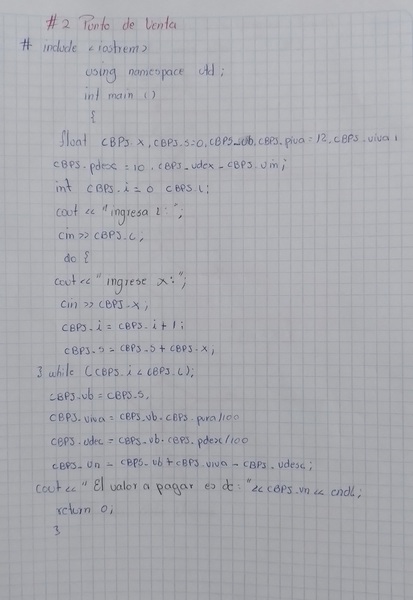 #2 Punto de Venta
# include <iostrem>
using namespace std;
int main ()
{
float CBPS-x, CBPS-s=0, CBPS-vb, CBPS-piva=12, CBPS-viva,
CBPS-pdesc=10, CBPS-vdex-CBPS-vn;
int CBPS-i=0 CBPS-L;
cout << "ingresa l:";
cin>> CBPS-L;
do {
cout<< "ingrese x:";
cin >> CBPS-x,
CBPS-i = CBPS-i+1;
CBPS-s = CBPS-s + CBPS-x,
} while (CBPS-i < CBPS-L);
CBPS-vb = CBPS-s,
CBPS-viva = CBPS-vb·CBPS-piva/100
CBPS-vdec = CBPS-vb·CBPS-pdesc/100
CBPS-vn - CBPS-vb+CBPS-viva-CBPS-vdesc;
cout << "El valor a pagar es de:"<< CBPS-vn << endl;
return 0;
}